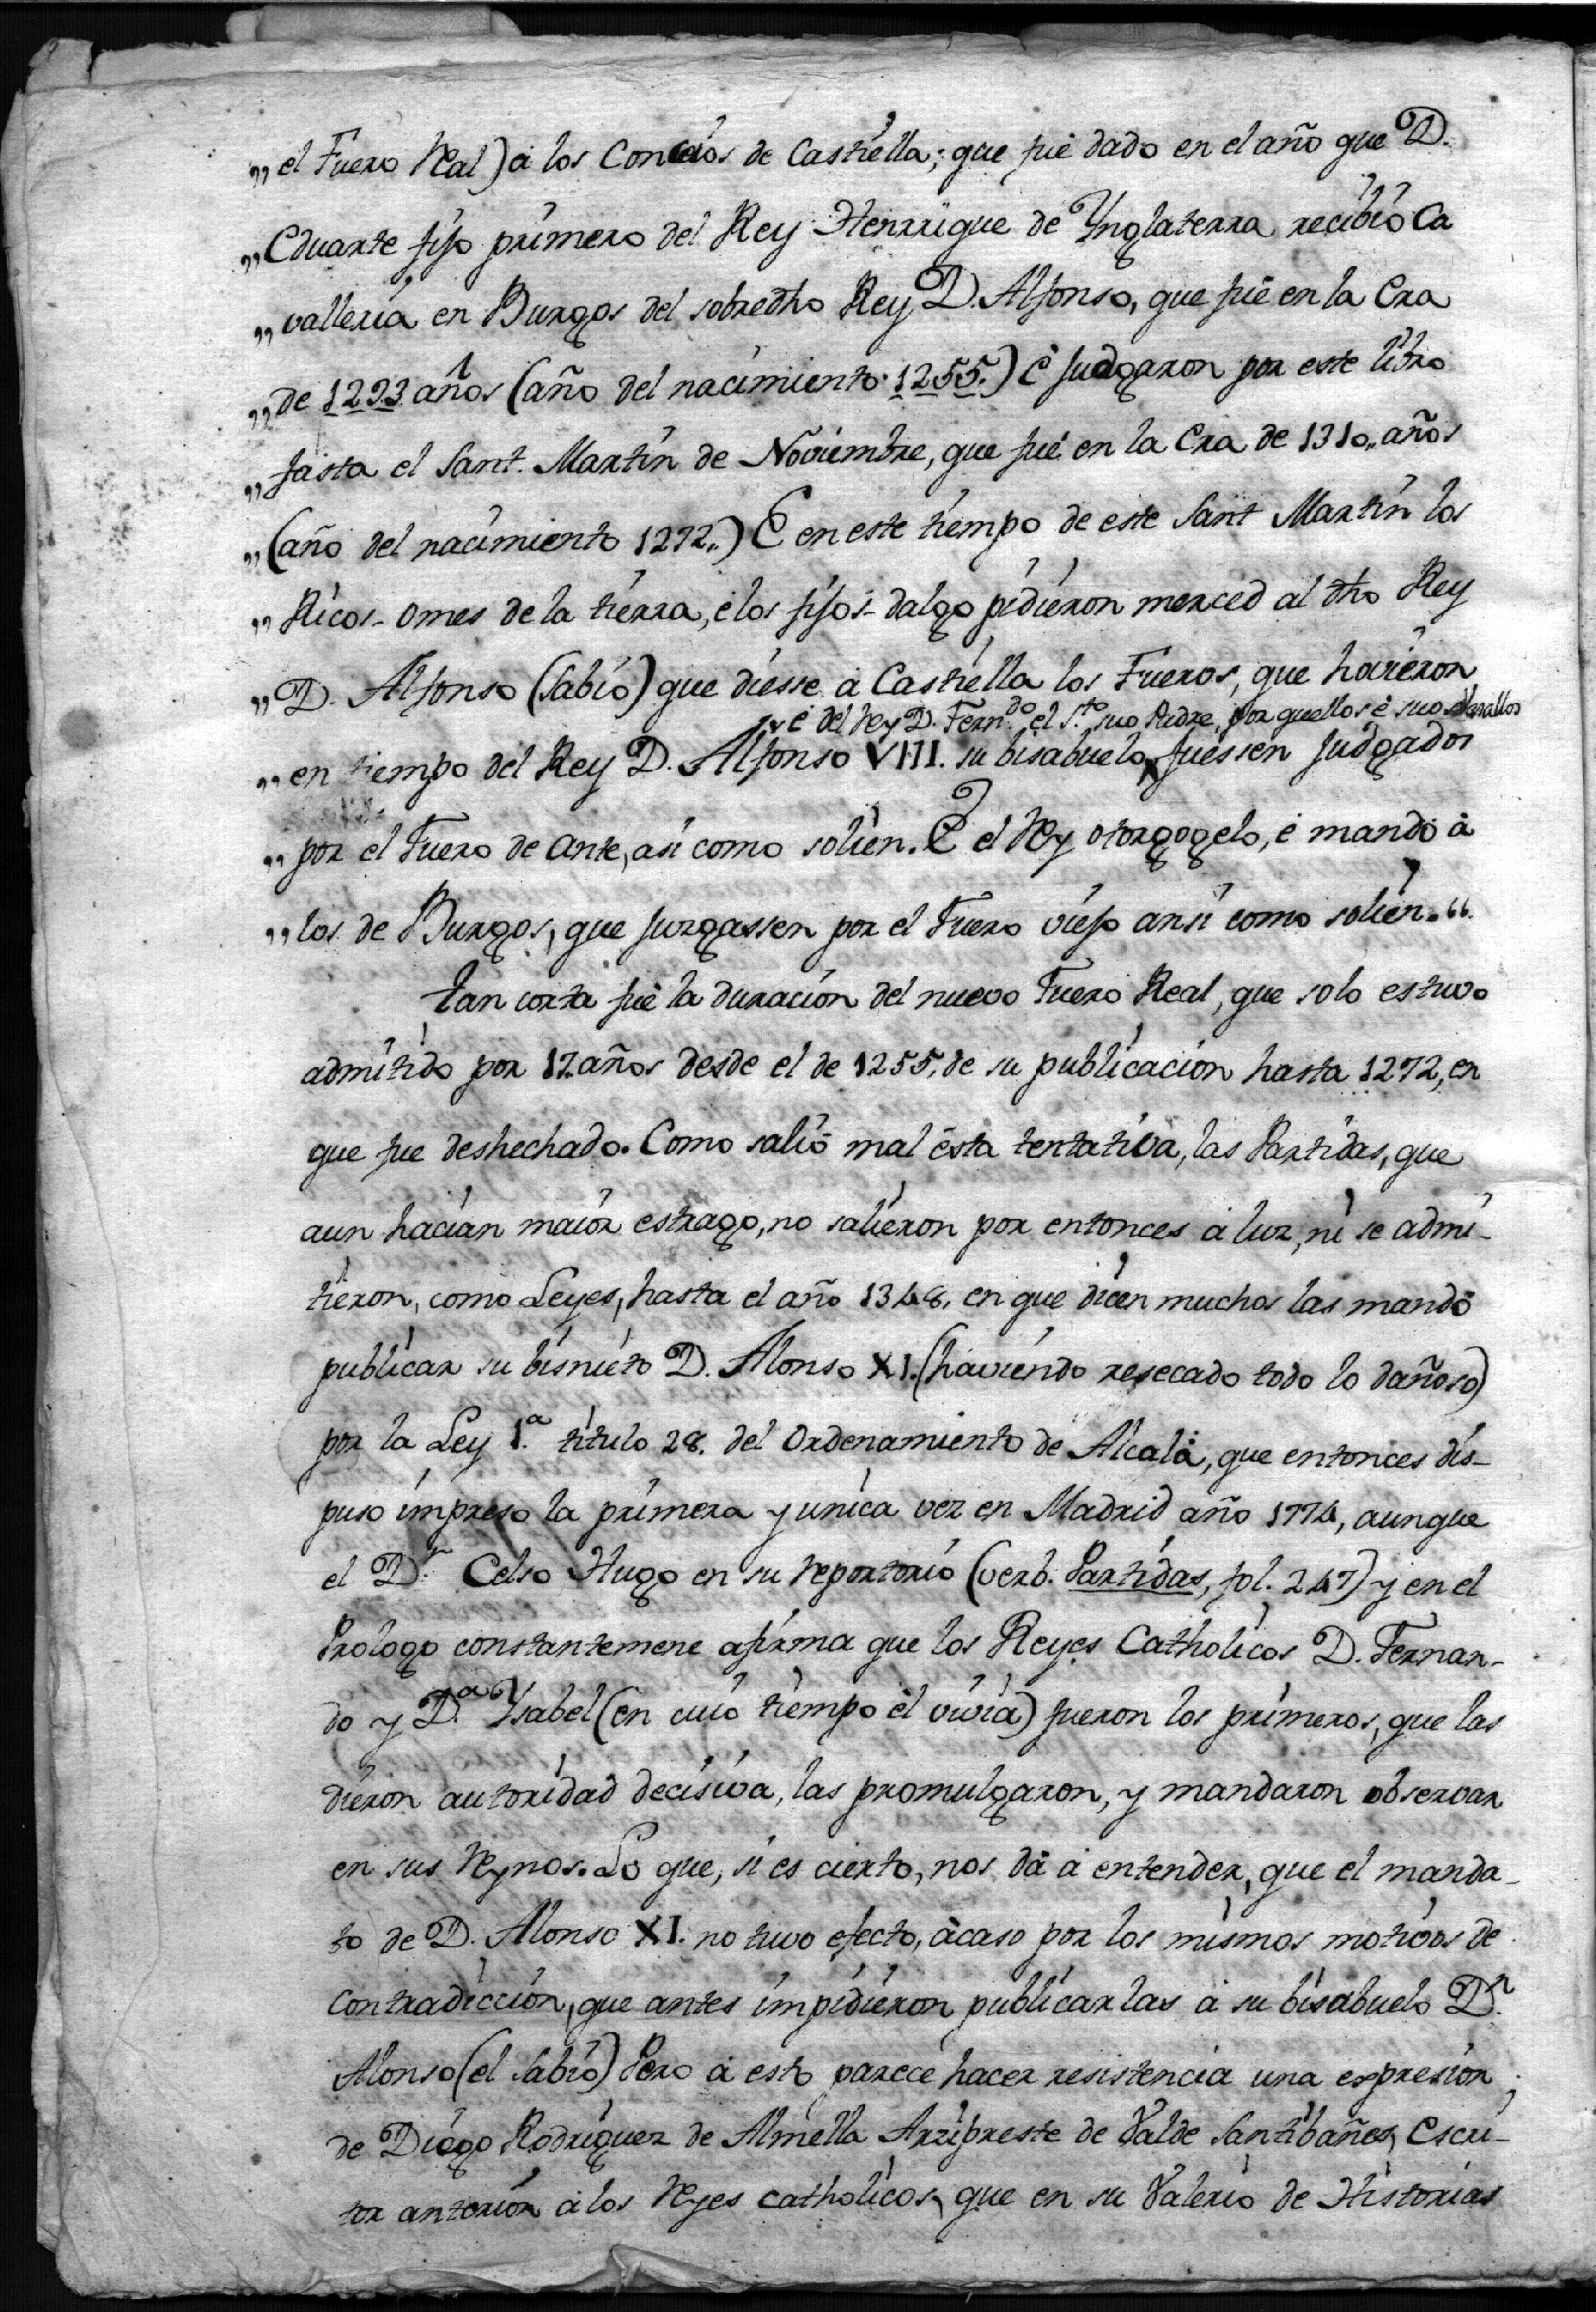 „el Fuero Real) á los Conceios de Castiella; que fué dado en el año que D.
„Eduarte fijo primero del Rey Henrrique de Ynglaterra recibió Ca
„vallería en Burgos del sobredho Rey D. Alfonso, que fué en la Era
„de 1293 años (año del nacimiento 1255.) é judgaron por este libro
„fasta el Sant. Martín de Noviembre, que fué en la Era de 1310„ años
„(año del nacimiento 1272„) E en este tiempo de este Sant Martín los
„Ricos-omes de la tierra, é los fijos-dalgo pidieron merced al dho Rey
„D. Alfonso (Sabio) que diesse á Castiella los Fueros, que havieron
é del Rey D. Fern.do el S.to suo Padre, por quellos é suos Vasallos
„en tiempo del Rey D. Alfonso VIII. su bisabuelo, fuessen judgados
„por el Fuero de ante, asi como solien. E el Rey otorgogelo, é mandó á
„los de Burgos, que jurgassen por el Fuero viejo ansi como solien.“
Tan corta fué la duración del nuevo Fuero Real, que solo estuvo
admitido por 17. años desde el de 1255, de su publicación hasta 1272, en
que fue deshechado. Como salió mal ésta tentativa, las Partidas, que
aun hacian maior estrago, no salieron por entonces á luz, ni se admi-
tieron, como Leyes, hasta el año 1348, en que dicen muchos las mandó
publicar su bisnieto D. Alonso XI. (haviendo resecado todo lo dañoso)
por la Ley 1.a titulo 28. del Ordenamiento de Alcalá, que entonces dis-
puso impreso la primera y unica vez en Madrid año 1774, aunque
el D.r Celso Hugo en su reportorio (verb. Partidas, fol. 247) y en el
Prologo constantemene afirma que los Reyes Catholicos D. Fernan-
do y D.a Ysabel (en cuio tiempo él vivia) fueron los primeros, que las
dieron autoridad decisiva, las promulgaron, y mandaron observar
en sus Reynos. Lo que, si es cierto, nos dá á entender, que el manda-
to de D. Alonso XI. no tuvo efecto, ácaso por los mismos motivos de
contradicción, que antes impidieron publicarlas á su bisabuelo D.n
Alonso (el Sabio) Pero á esto parece hacer resistencia una expresion
de Diego Rodriguez de Almella Arzipreste de Valde Santibañez, Escri-
tor anterior á los Reyes catholicos, que en su Valerio de Historias